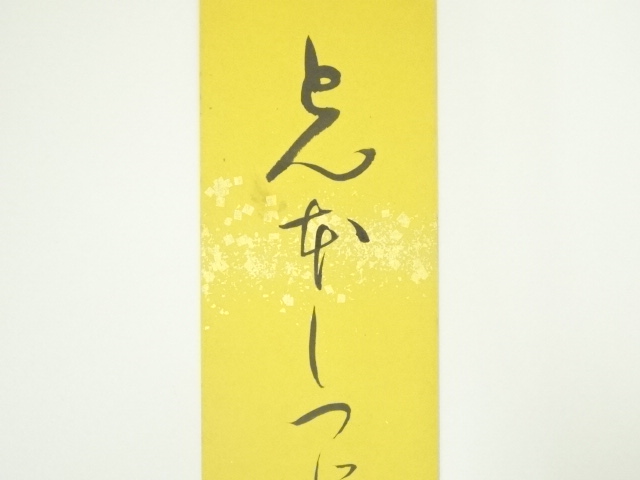 とんほしつ